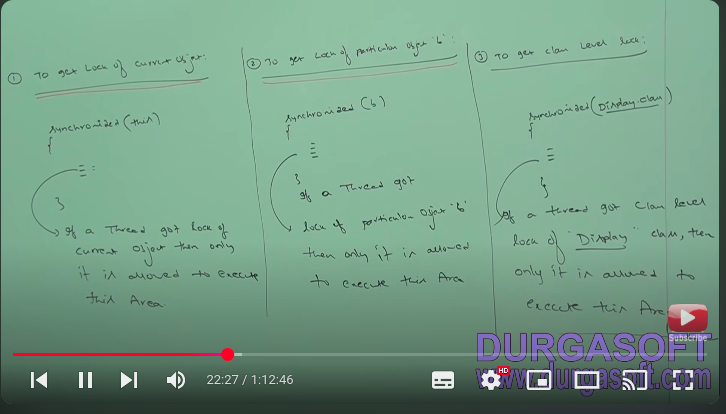 ① To get Lock of current Object:
synchronized(this)
{
}
If a Thread got Lock of
current Object then only
it is allowed to execute
this Area
② To get Lock of particular Object 'b':
synchronized(b)
{
}
If a Thread got
lock of particular Object 'b'
then only it is allowed
to execute this Area
③ To get class Level lock:
synchronized(Display.class)
{
}
If a thread got class level
lock of "Display" class, then
only it is allowed to
execute this Area
Subscribe
DURGASOFT
www.durgasoft.com
22:27 / 1:12:46
HD